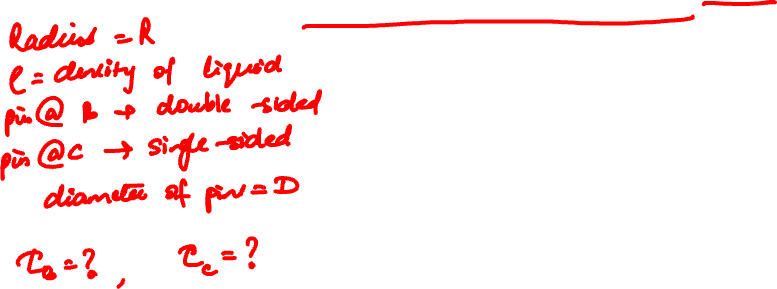 Radius = R
ρ = density of liquid
pin @ B → double-sided
pin @ C → single-sided
diameter of pin = D
τ_B = ?, τ_C = ?